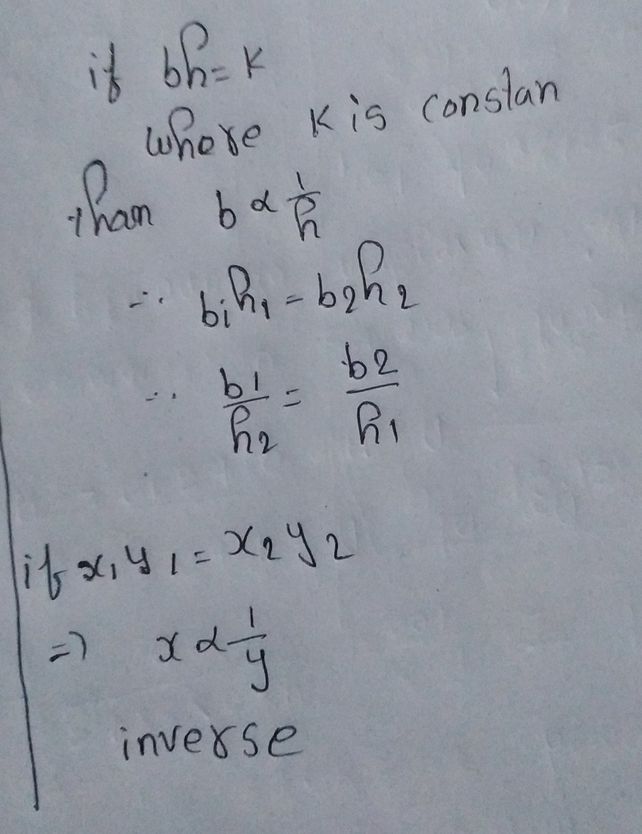 if bh = k
where k is constan
than b ∝ 1/h
∴ b₁h₁ = b₂h₂
∴ b1/h₂ = b2/h₁
if x₁y₁ = x₂y₂
=> x ∝ 1/y
inverse